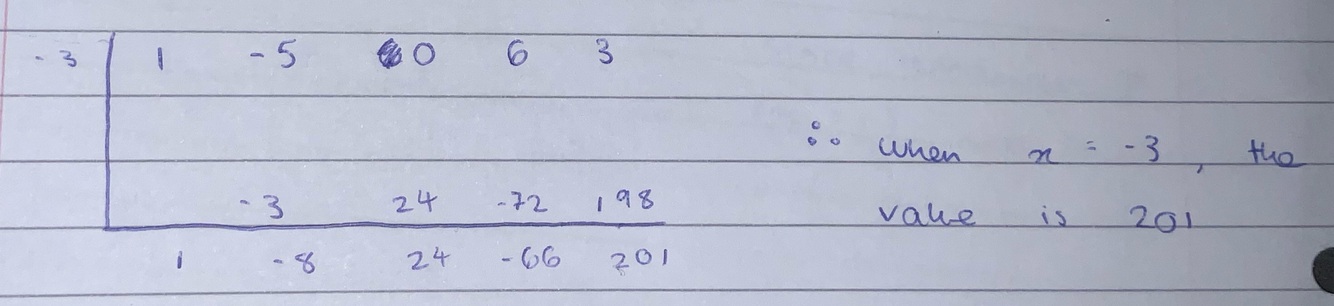 -3 1 -5 0 6 3
∴ when x = -3, the
-3 24 -72 198
value is 201
1 -8 24 -66 201